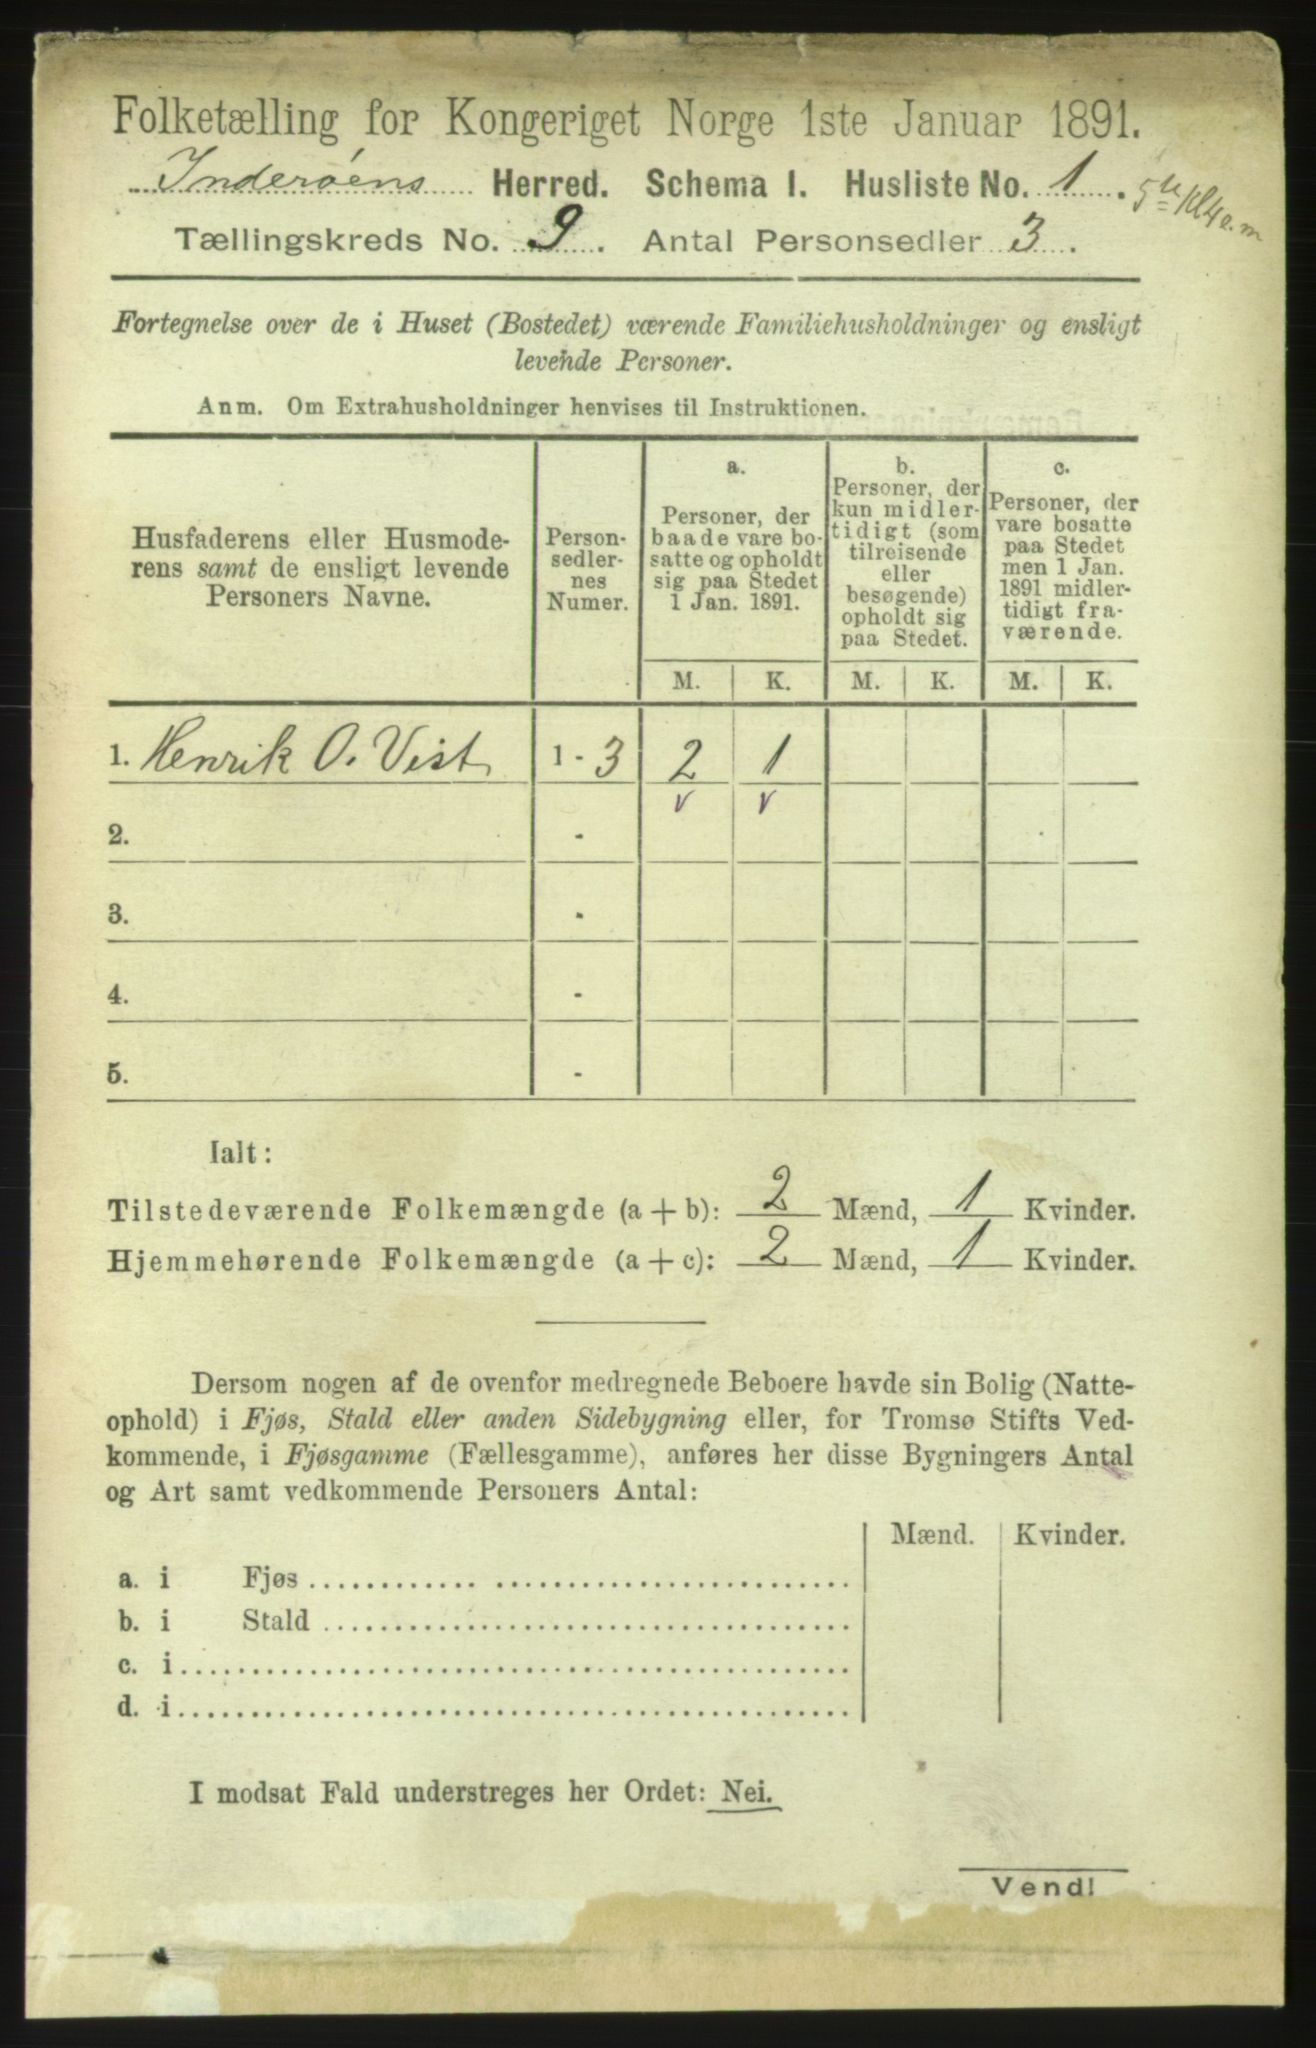 Folketælling for Kongeriget Norge 1ste Januar 1891.
Inderøens Herred. Schema I. Husliste No. 1.
Tællingskreds No. 9. Antal Personsedler 3.
Fortegnelse over de i Huset (Bostedet) værende Familiehusholdninger og ensligt
levende Personer.
Anm. Om Extrahusholdninger henvises til Instruktionen.
Husfaderens eller Husmode-
rens samt de ensligt levende
Personers Navne.
Person-
sedler-
nes
Numer.
a.
Personer, der
baade vare bo-
satte og opholdt
sig paa Stedet
1 Jan. 1891.
b.
Personer, der
kun midler-
tidigt (som
tilreisende
eller
besøgende)
opholdt sig
paa Stedet.
c.
Personer, der
vare bosatte
paa Stedet
men 1 Jan.
1891 midler-
tidigt fra-
værende.
M. K. M. K. M. K.
1. Henrik O. Vist 1 - 3 2 1
v v
2. -
3. -
4. -
5. -
Ialt:
Tilstedeværende Folkemængde (a + b): 2 Mænd, 1 Kvinder.
Hjemmehørende Folkemængde (a + c): 2 Mænd, 1 Kvinder.
Dersom nogen af de ovenfor medregnede Beboere havde sin Bolig (Natte-
ophold) i Fjøs, Stald eller anden Sidebygning eller, for Tromsø Stifts Ved-
kommende, i Fjøsgamme (Fællesgamme), anføres her disse Bygningers Antal
og Art samt vedkommende Personers Antal:
Mænd. Kvinder.
a. i Fjøs
b. i Stald
c. i
d. i
I modsat Fald understreges her Ordet: Nei.
Vend!